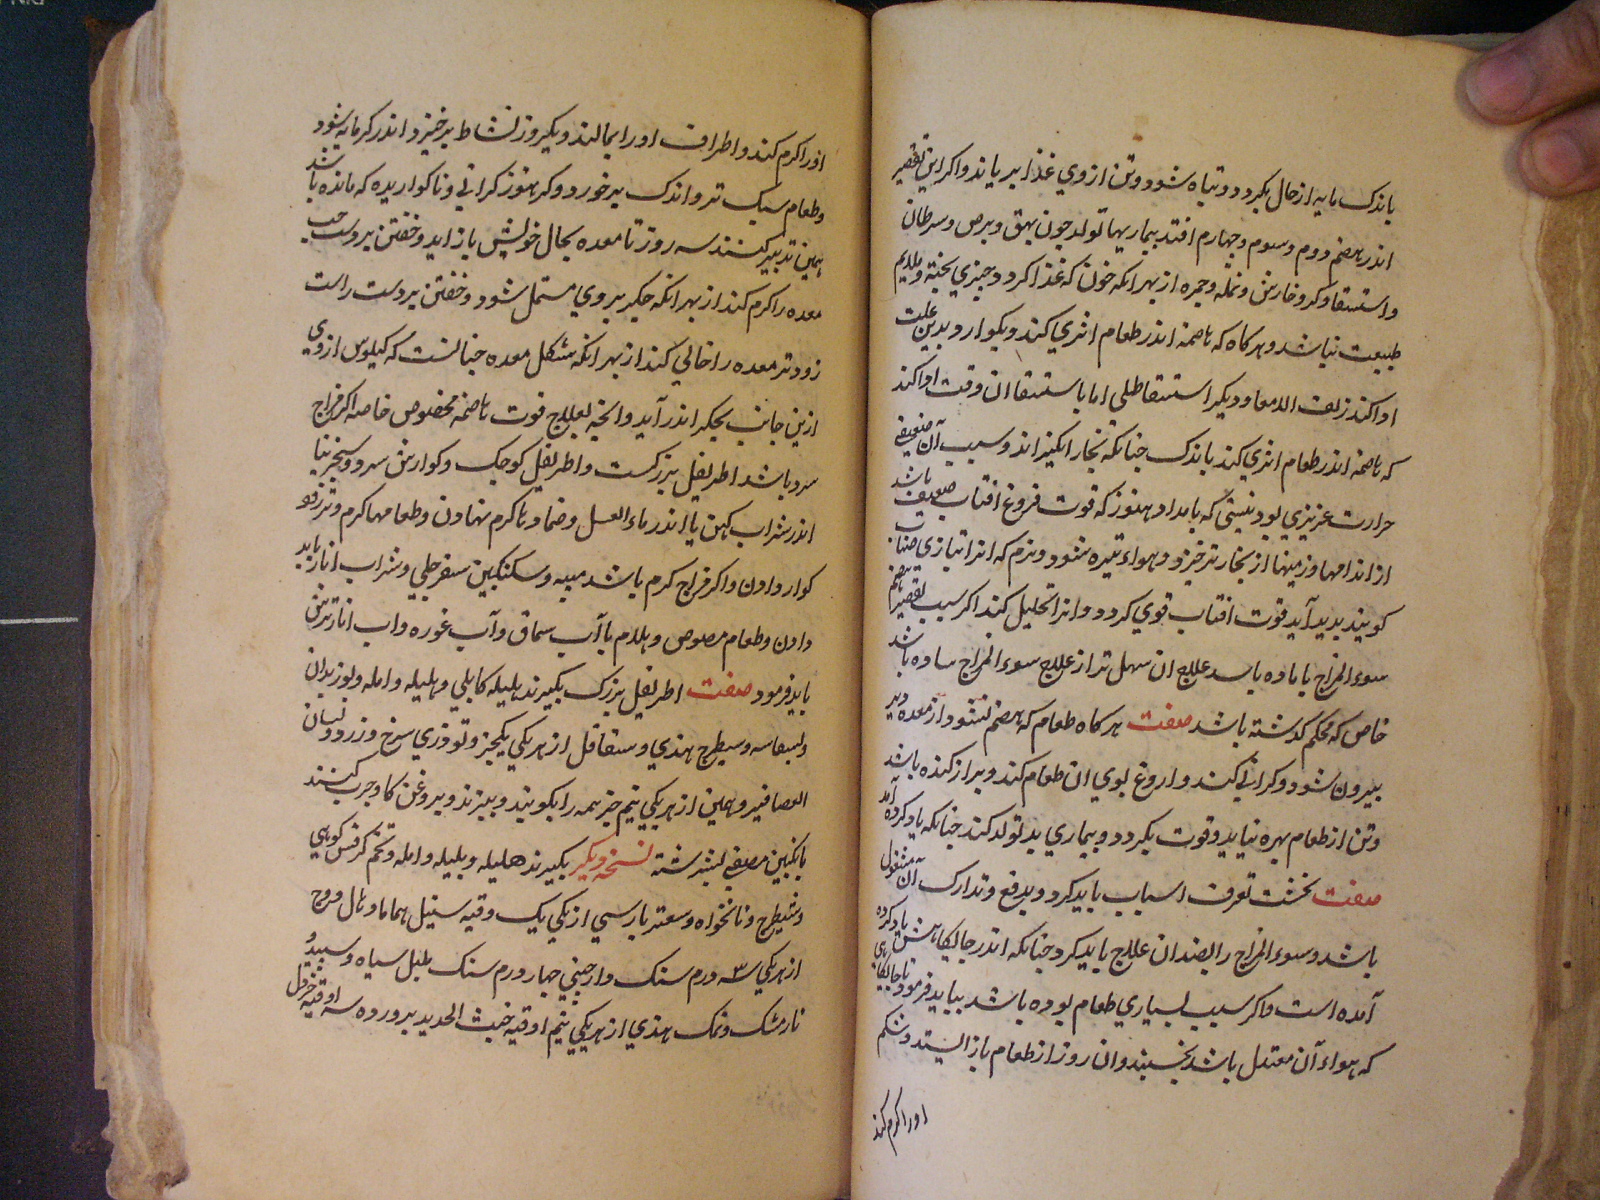 باندک مایه از حال بکردد و تباه شود و تن از وی غذا بر یابد و اکر این تقصیر
اندر هضم دوم و سوم و چهارم افتد بیماریها تولد چون بهق و برص و سرطان
و استسقا و کر و خارش و نمله و جمره از بهر انکه خون که غذا کردد چیزی پخته و ملایم
طبیعت نباشد و هرکاه که هاضمه اندر طعام اثری کند و بکوارد بدین علت
ادا کند زلق الامعا و دیکر استسقا طبلی اما باستسقا ان وقت ادا کند
که هاضمه اندر طعام اثری کند باندک جنانکه بخار انکیزاند و سبب آن ضعیفی
حرارت عزیزی بود نبینی که بامداد هنوز که قوت فروغ افتاب ضعیف باشد
از اندامها و زمینها از بخار تر خیزد و هواء تیره شود و نزم که انرا بتازی ضباب
کویند پدید آید قوت افتاب قوی کردد و انرا تحلیل کند اکر سبب تقصیر هضم
سوء المزاج با ماده باشد علاج ان سهل تر از علاج سوء المزاج ساده باشد
خاص که محکم کدشته باشد صفت هرکاه طعام که هضم نشود از معده دیر
بیرون شود و کرانی کند و اروغ بوی ان طعام کند و براز کنده باشد
و تن از طعام بهره نیابد و قوت بکردد و بیماری بد تولد کند جنانکه یاد کرده آمد
صفت نخست تعرف اسباب باید کرد و بدفع و تدارک آن مشغول
باشد و سوء المزاج را بضد ان علاج باید کرد جنانکه اندر جایکاهش یاد کرده
آمده است و اکر سبب بسیاری طعام بوده باشد بباید فرمود تا جایکاهی
که هواء آن معتدل باشد بخسبند و ان روز از طعام باز ایستد و شکم
اورا کرم کند
اورا کرم کند و اطراف اورا بمالند و یکروز نشاط برخیزد اندر کرمابه شود
و طعام سبک تر و اندک برخورد و کر هنوز کرانی و ناکواریده که مانده باشد
همین تدبیر کنند سه روز تا معده بحال خویش باز اید و خفتن بر دست چپ
معده را کرم کند از بهر انکه جکر بروی مشتمل شود و خفتن بر دست راست
زودتر معده را خالی کند از بهر انکه شکل معده جنانست که کیلوس از وی
ازین جانب بجکر اندر آید و انچه بعلاج قوت هاضمه مخصوص خاصه اکر مزاج
سرد باشد اطریفل بزرکست و اطریفل کوچک و کوارش سرد و سنجرینا
اندر شراب کهن یا اندر ماء العسل و ضمادها کرم نهادن و طعامها کرم و تیز زود
کوار دادن و اکر مزاج کرم باشد میبه و سکنکبین سفرجلی و شراب انار باید
دادن و طعام مصوص و هلام با آب سماق و آب غوره و اب انار ترش
باید فرمود صفت اطریفل بزرک بکیرند هلیله کابلی و بلیله و امله و بوزیدان
و بسباسه و شیطرج هندی و شقاقل از هر یکی یکجز و تودری سرخ و زرد و لسان
العصافیر و بهمین از هر یکی نیم جز همه را بکویند و ببیزند و بروغن کاو چرب کنند
بانکبین مصفی بسرشته نسخه دیکر بکیرند هلیله و بلیله و امله و تخم کرفس کوهی
و شیطرج و نانخواه و سعتر پارسی از یکی یک وقیه سنبل هماما و هال و وج
از هر یکی ۳ درم سنک دارچینی چهار درم سنک پلپل سیاه و سپید و
نارمشک و نمک هندی از هر یکی نیم اوقیه خبث الحدید پرورده سه اوقیه خردل